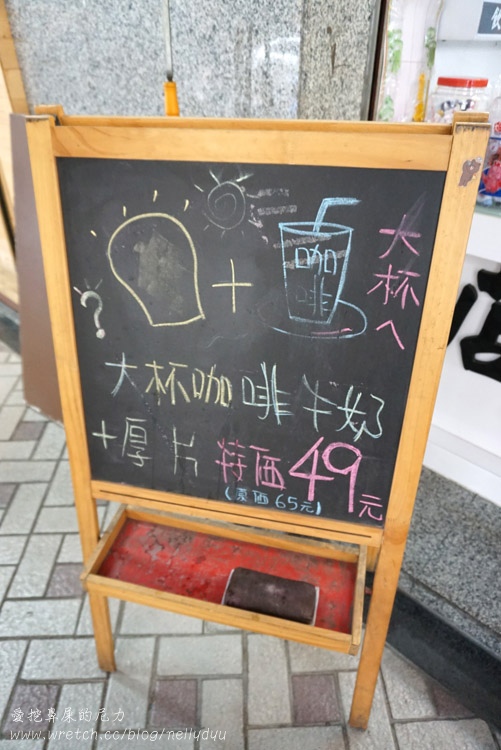 ?
咖
啡
大
杯
ㄟ
大杯咖啡牛奶
+厚片 特価49元
(原価65元)
愛挖鼻屎的尼力
www.wretch.cc/blog/nellydyu